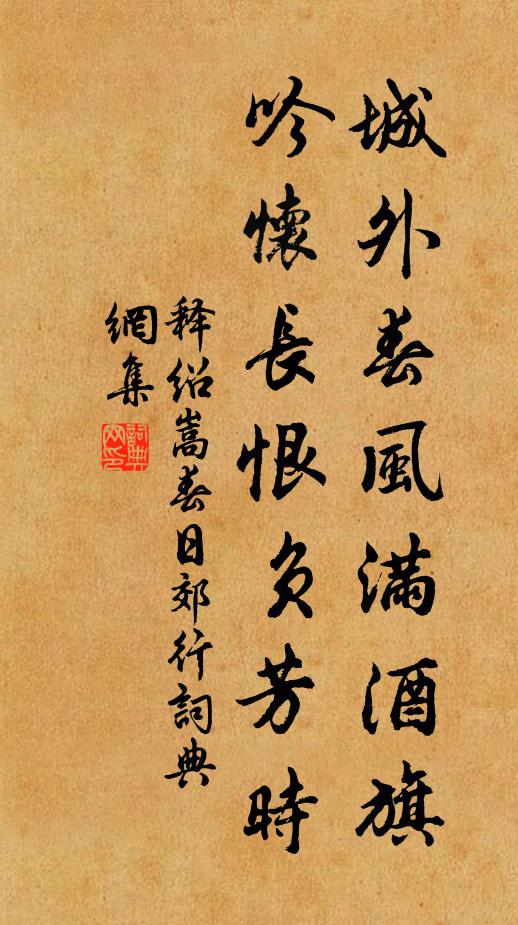 城外春風滿酒旗
吟懷長恨負芳時
释紹嵩春日郊行詞典
網集